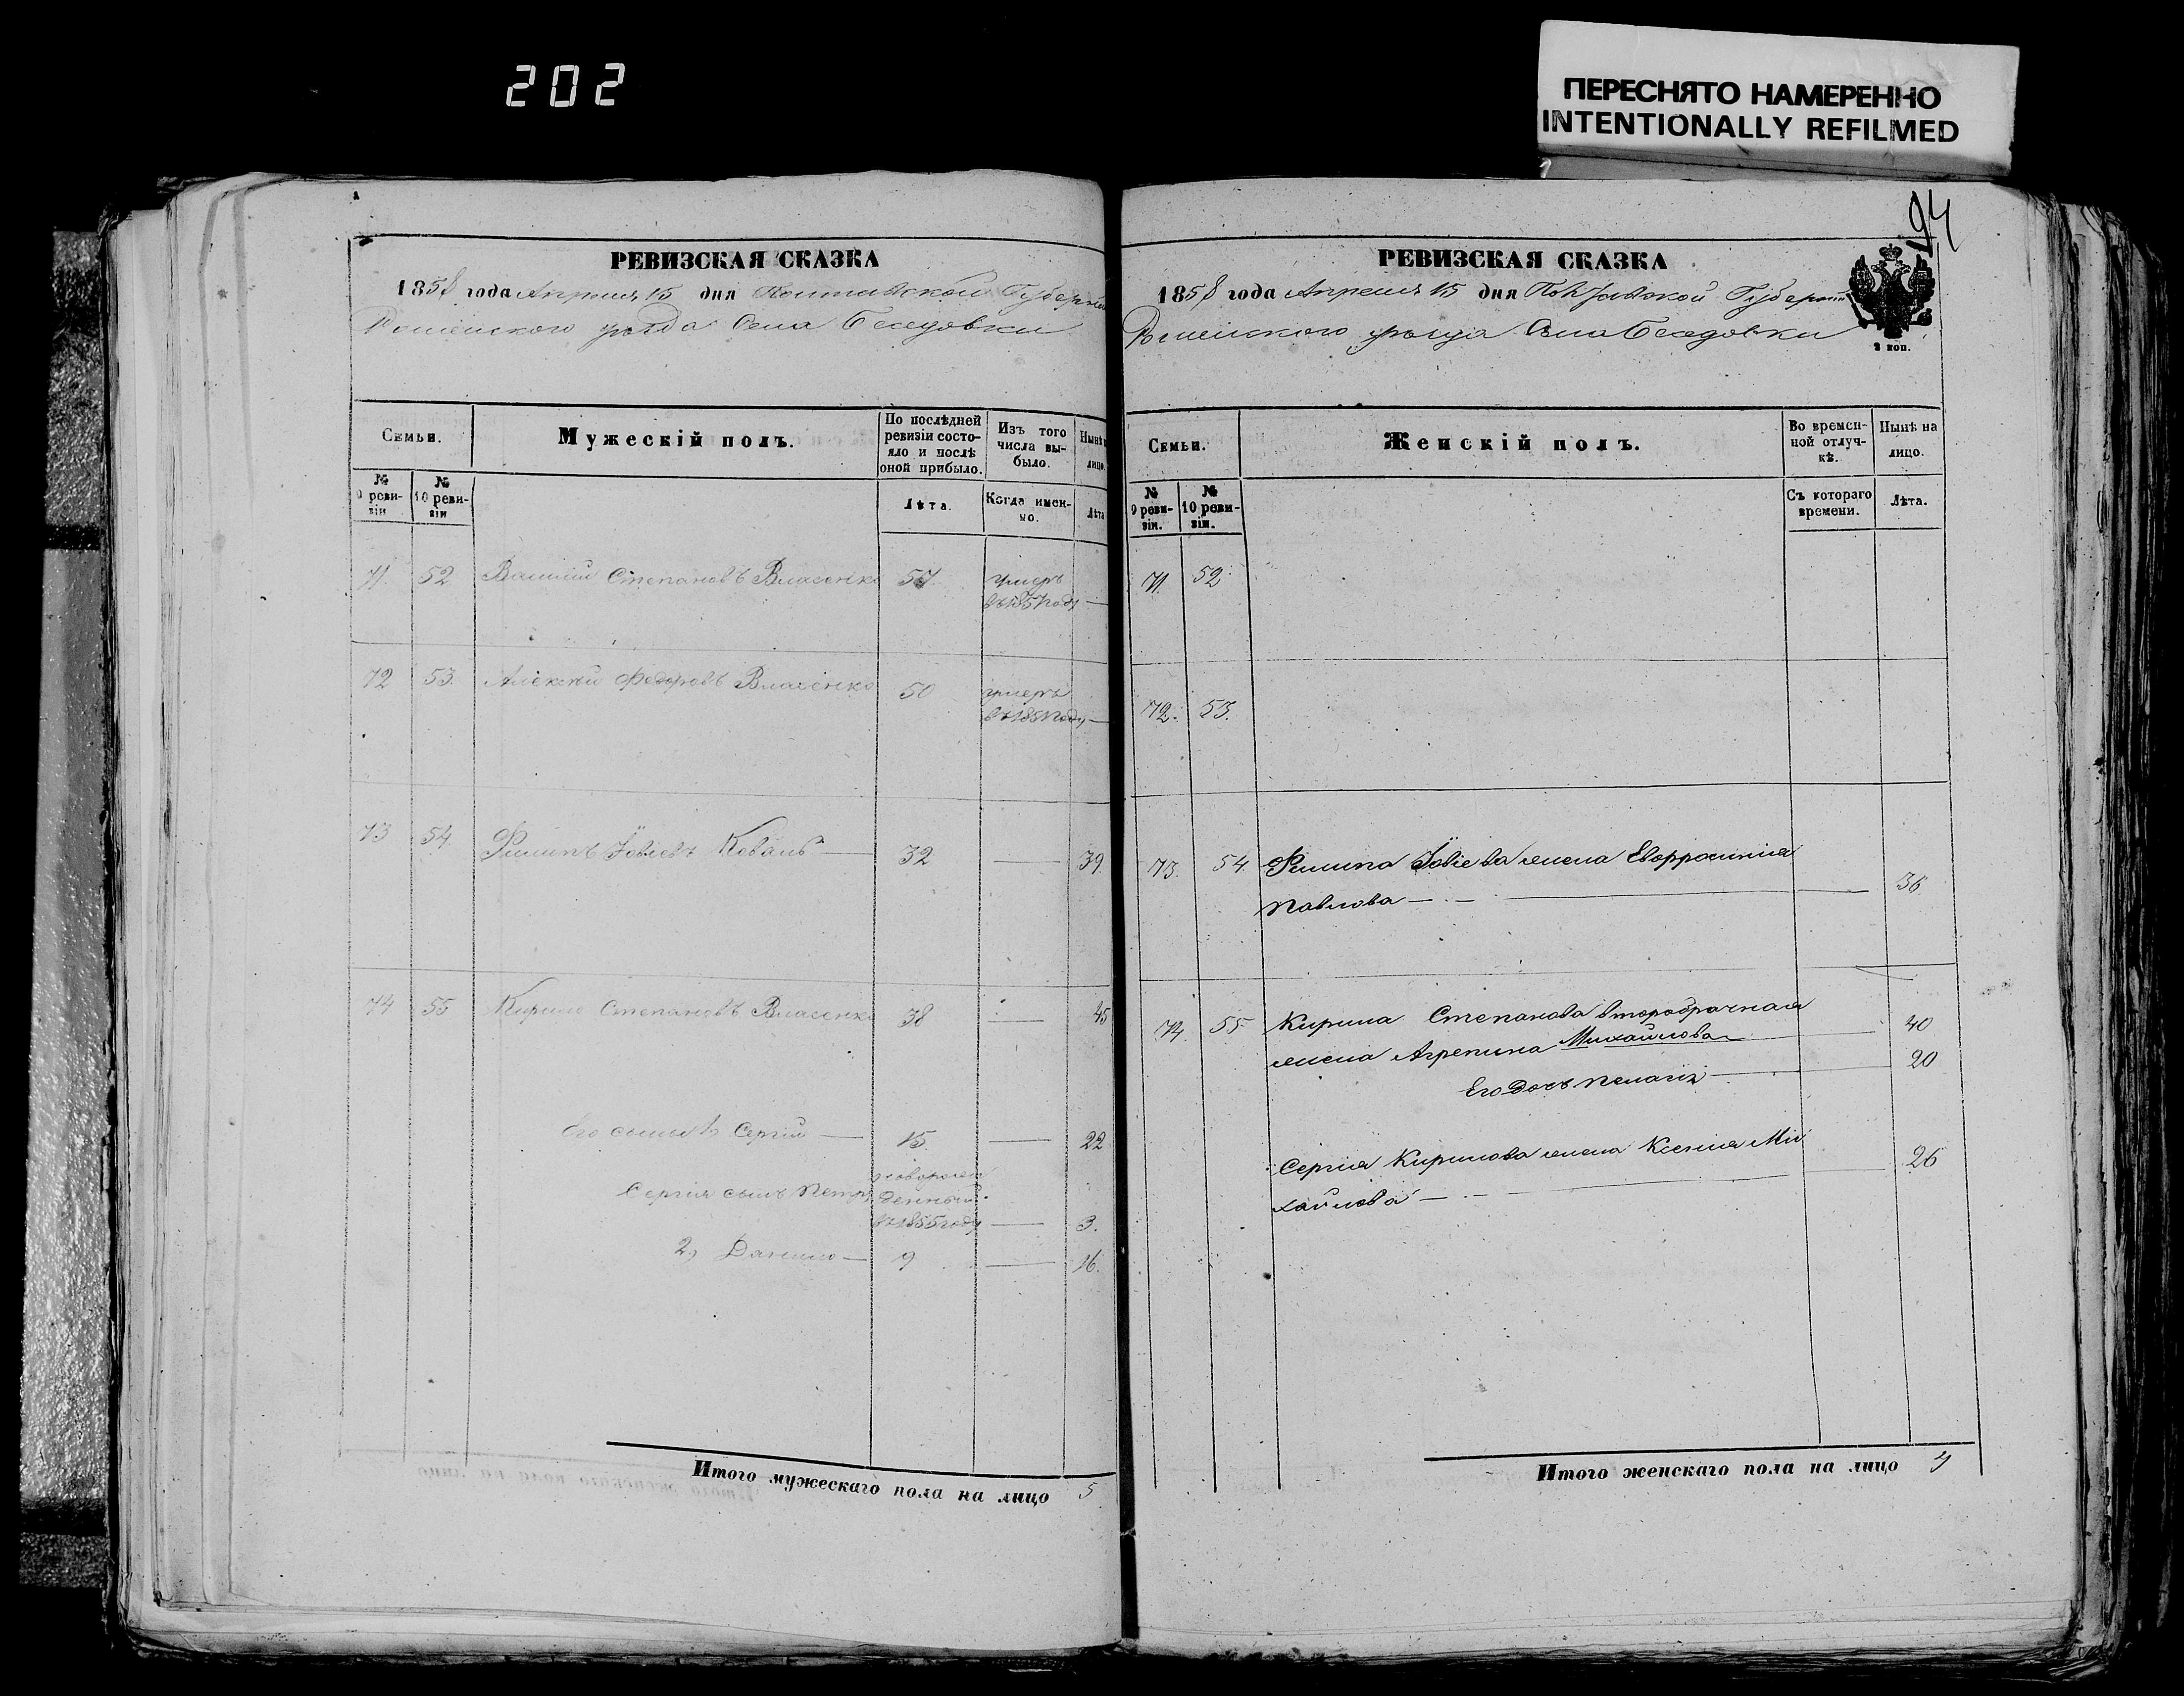 202
ПЕРЕСНЯТО НАМЕРЕННО
INTENTIONALLY REFILMED
94
РЕВИЗСКАЯ СКАЗКА
1858 года Апреля 15 дня Полтавской Губерніи
Роменского уезда Села Беседовки
Семьи.
Мужескій полъ.
По послѣдней ревизіи состояло и послѣ оной прибыло.
Изъ того числа выбыло.
Нынѣ на лицо.
№ 9 ревизіи
№ 10 ревизіи
Лѣта.
Когда именно.
Лѣта
71. 52 Василій Степановъ Власенко 57. умеръ
въ 1857 году —
72 53. Алексѣй Федоровъ Власенко 50 умеръ
въ 1851 году —
73 54. Филипъ Іовіевъ Коваль — 32 — 39.
74 55 Кирило Степановъ Власенко 38 — 45
Его сыны 1, Сергій — 15. — 22
Сергія сынъ Петръ новорожденный
въ 1855 году — 3.
2, Данило — 9 — 16.
Итого мужескаго пола на лицо 5.
РЕВИЗСКАЯ СКАЗКА
1858 года Апреля 15 дня Полтавской Губерніи
Роменского уезда Села Беседовки
3 коп.
Семьи.
Женскій полъ.
Во временной отлучкѣ.
Нынѣ на лицо.
№ 9 ревизіи.
№ 10 ревизіи.
Съ котораго времени.
Лѣта.
71. 52.
72. 53.
73. 54. Филипа Іовіева жена Евфросинія
Павлова — — 36
74. 55 Кирила Степанова второбрачная
жена Агрепина Михайлова — 40
Его дочь Пелагія — 20
Сергія Кирилова жена Ксенія Ми
хайлова — — 26
Итого женскаго пола на лицо 4